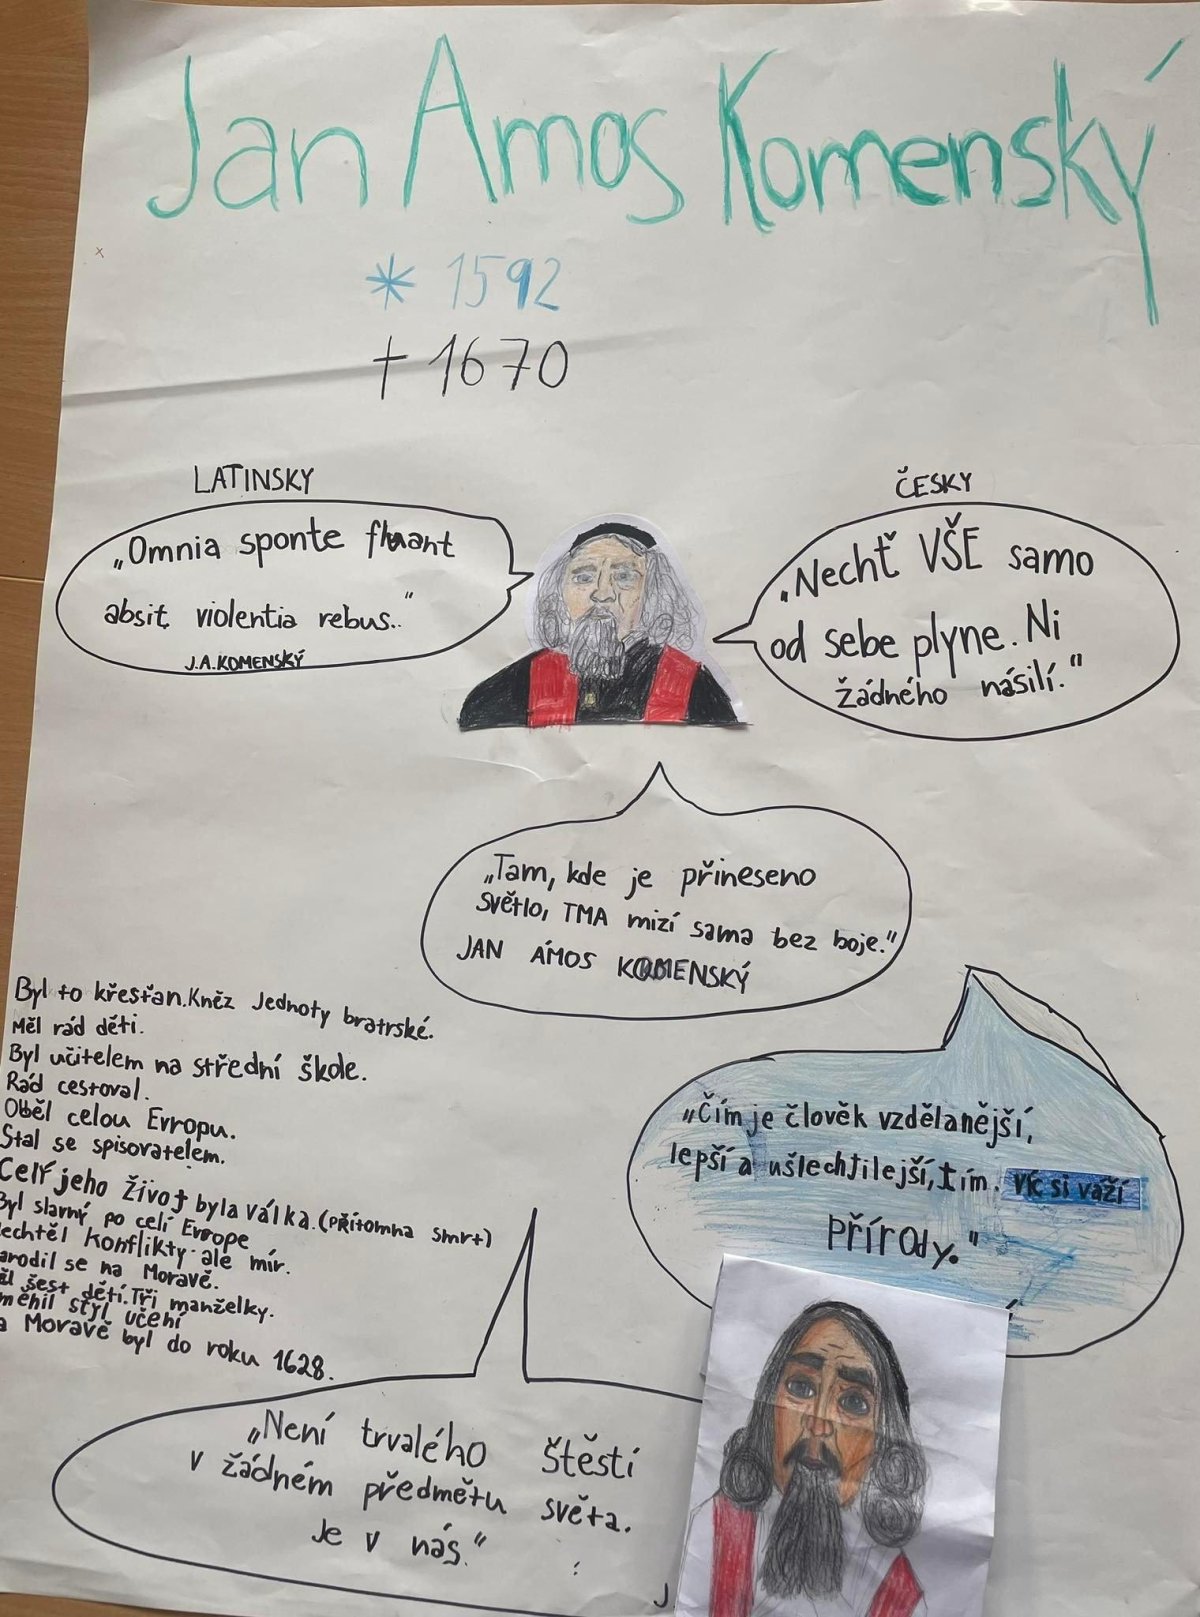 Jan Amos Komenský
* 1592
† 1670
LATINSKY
„Omnia sponte fluant
absit violentia rebus."
J.A.KOMENSKÝ
ČESKY
„Nechť VŠE samo
od sebe plyne. Ni
žádného násilí."
„Tam, kde je přineseno
světlo, TMA mizí sama bez boje."
JAN ÁMOS KOMENSKÝ
Byl to křesťan. Kněz Jednoty bratrské.
Měl rád děti.
Byl učitelem na střední škole.
Rád cestoval.
Oběl celou Evropu.
Stal se spisovatelem.
Celý jeho život byla válka. (Přítomna smrt)
Byl slavný po celí Evrope
echtěl konflikty ale mír.
arodil se na Moravě.
šest dětí. Tři manželky.
měnil styl učení
a Moravě byl do roku 1628.
„Čím je člověk vzdělanější,
lepší a ušlechtilejší, tím. víc si váží
přírody."
„Není trvalého štěstí
v žádném předmětu světa.
Je v nás."
J.